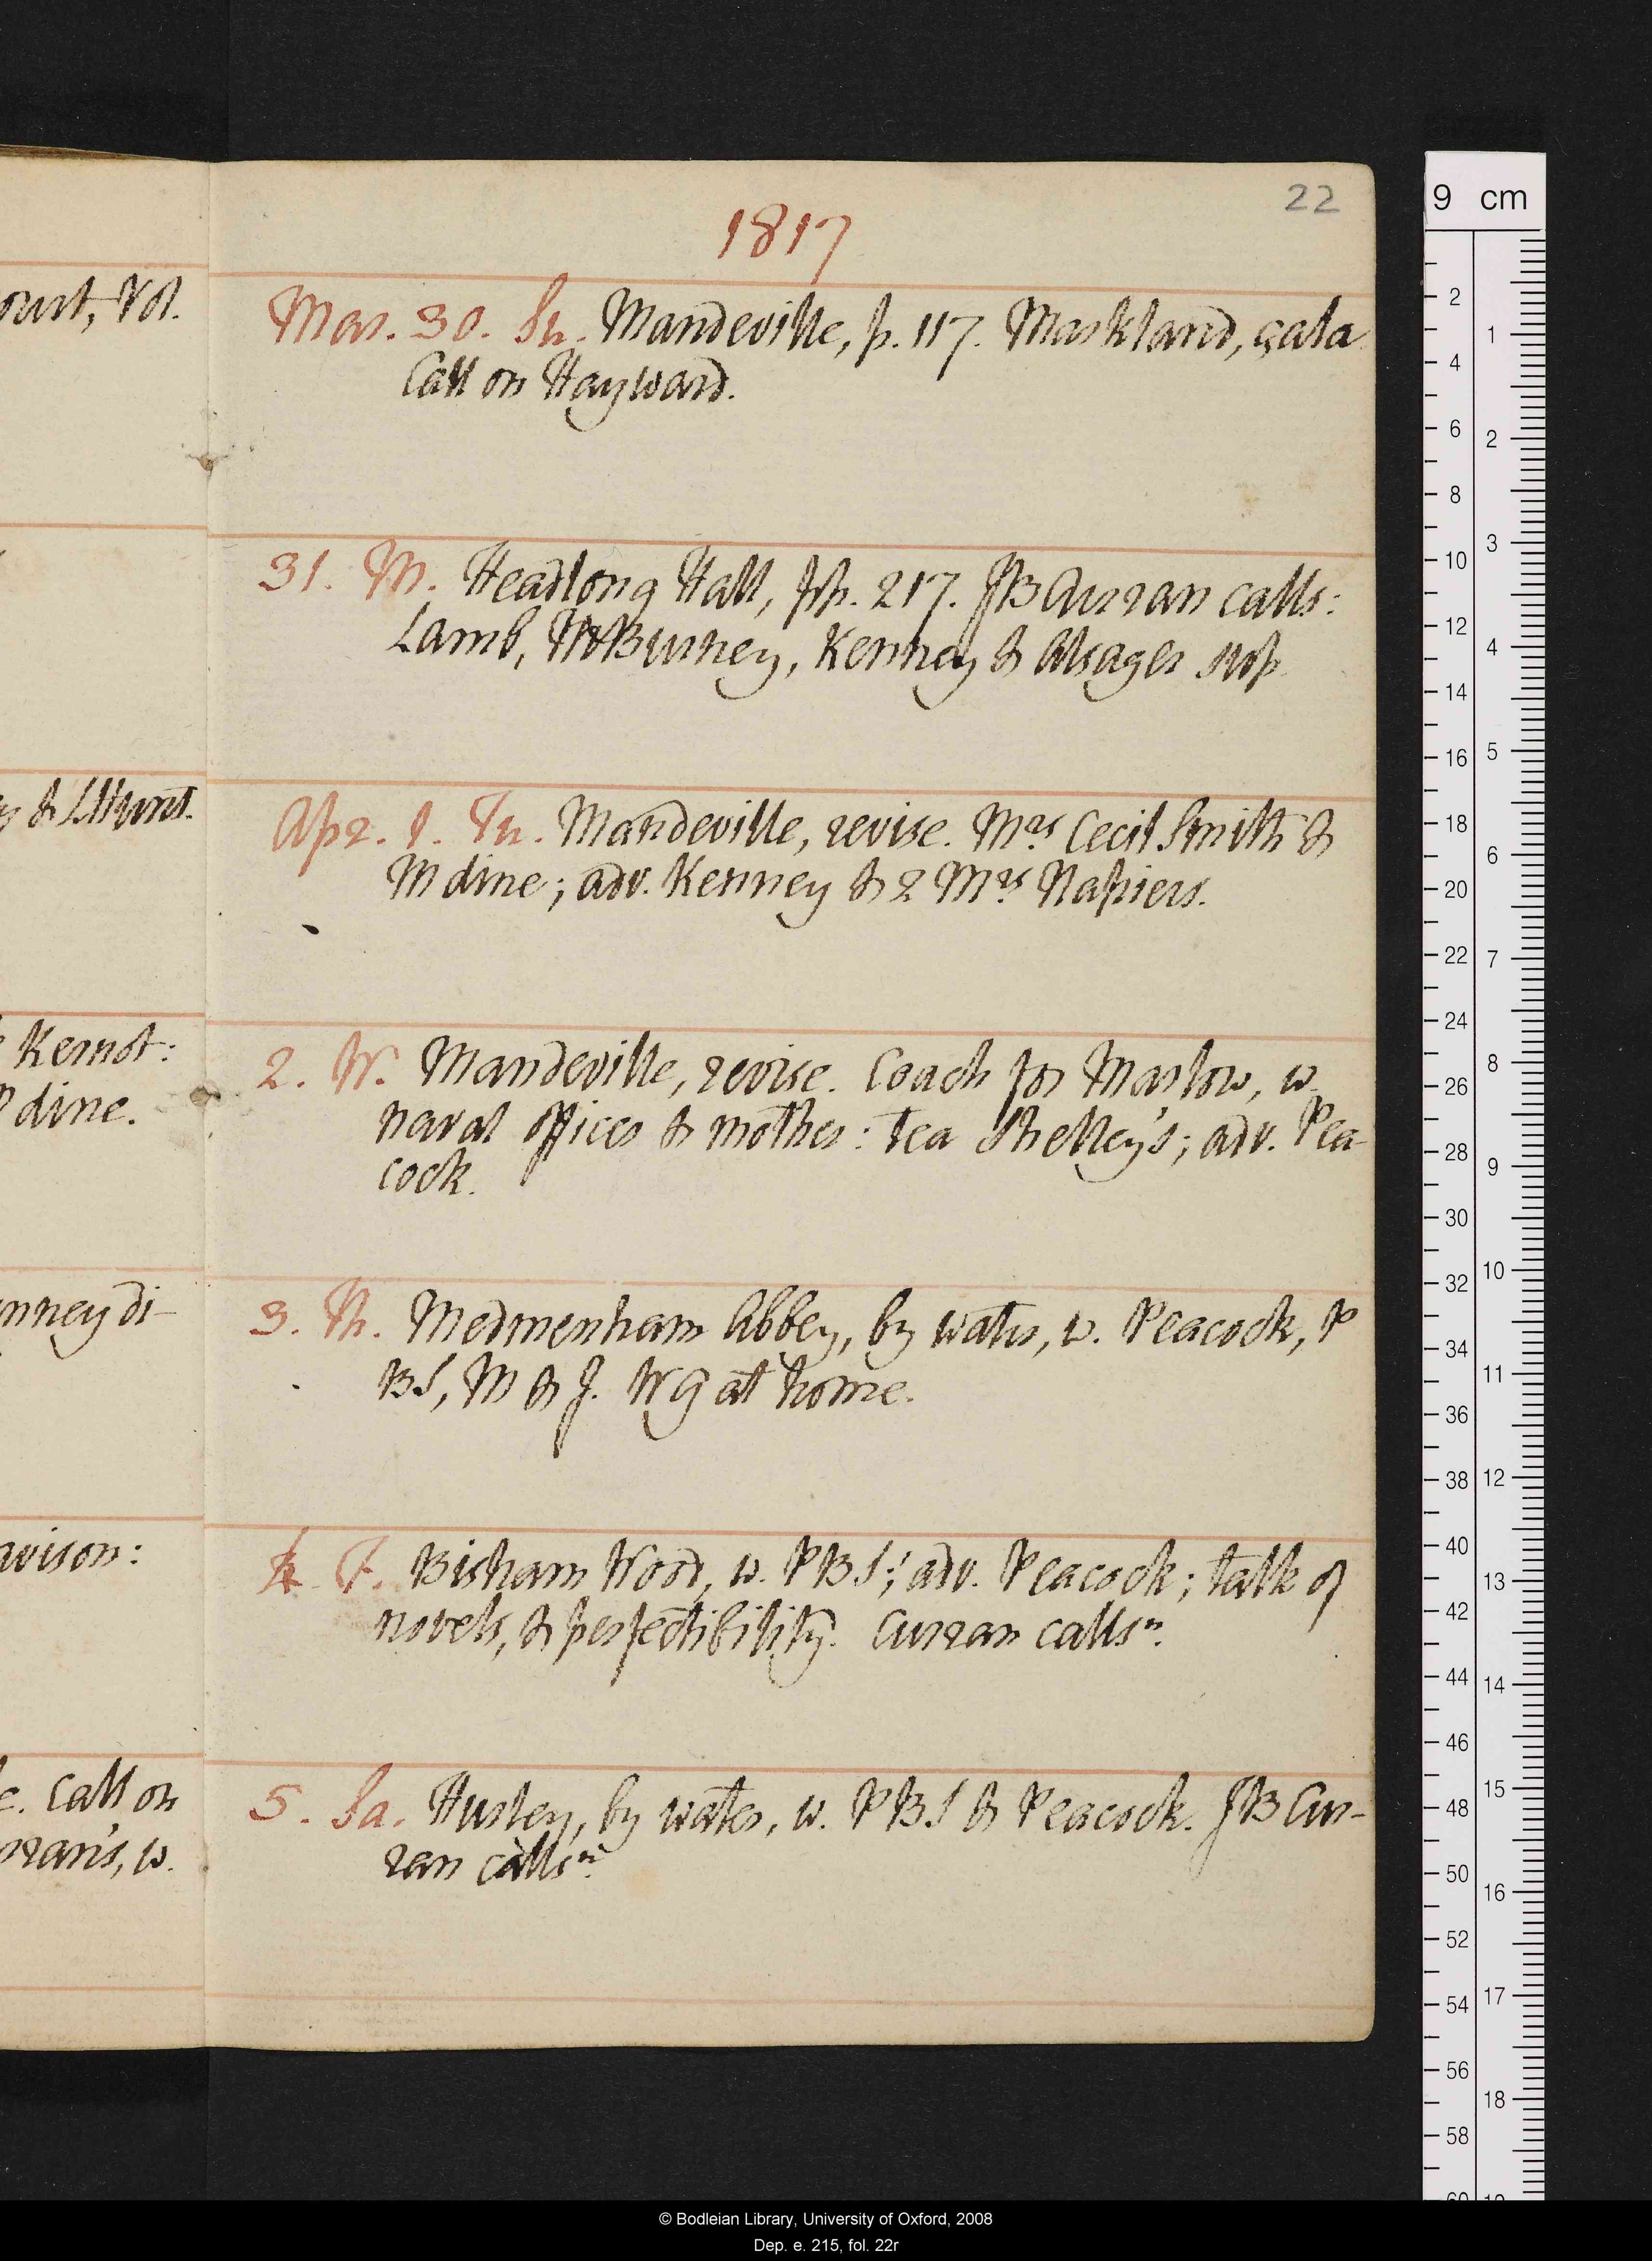 22
1817
ourt, Vol.
Mar. 30. Su. Mandeville, p. 117. Markland, çala
Call on Hayward.
31. M. Headlong Hall, pp. 217. JB Curran calls:
Lamb, MBurney, Kenney & Alsager sup
& LHunt.
Apr. 1. Tu. Mandeville, revise. Mrs Cecil Smith &
M dine; adv. Kenney & 2 Mrs Napiers.
Kernot:
dine.
2. W. Mandeville, revise. Coach for Marlow, w.
naval officer & mother: tea Shelley's; adv. Pea-
cock.
nney di-
3. Th. Medmenham Abbey, by water, w. Peacock, P
BS, M & J. W G at home.
avison:
4. F. Bisham Wood, w. PBS; adv. Peacock; talk of
novels, & perfectibility. Curran calls n.
Call on
rran's, w.
5. Sa. Hurley, by water, w. PBS & Peacock. JB Cur-
ran calls n.
9 cm
2
4
6
8
10
12
14
16
18
20
22
24
26
28
30
32
34
36
38
40
42
44
46
48
50
52
54
56
58
1
2
3
4
5
6
7
8
9
10
11
12
13
14
15
16
17
18
© Bodleian Library, University of Oxford, 2008
Dep. e. 215, fol. 22r